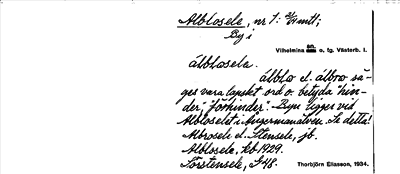 Alblosele, nr 1: 2/3 mtl;
By i
Vilhelmina sn o. tg. Västerb. l.
álblåsela.
álbla el. álbro sä-
ges vara lapskt ord o. betyda "hin-
der", "förhinder". Byn ligger vid
Albloselet i Ångermanälven. Se detta!
Albrosele el. Stensele, jb.
Alblosele, kb 1929.
Torstensele, J 48.
Thorbjörn Eliasson, 1934.